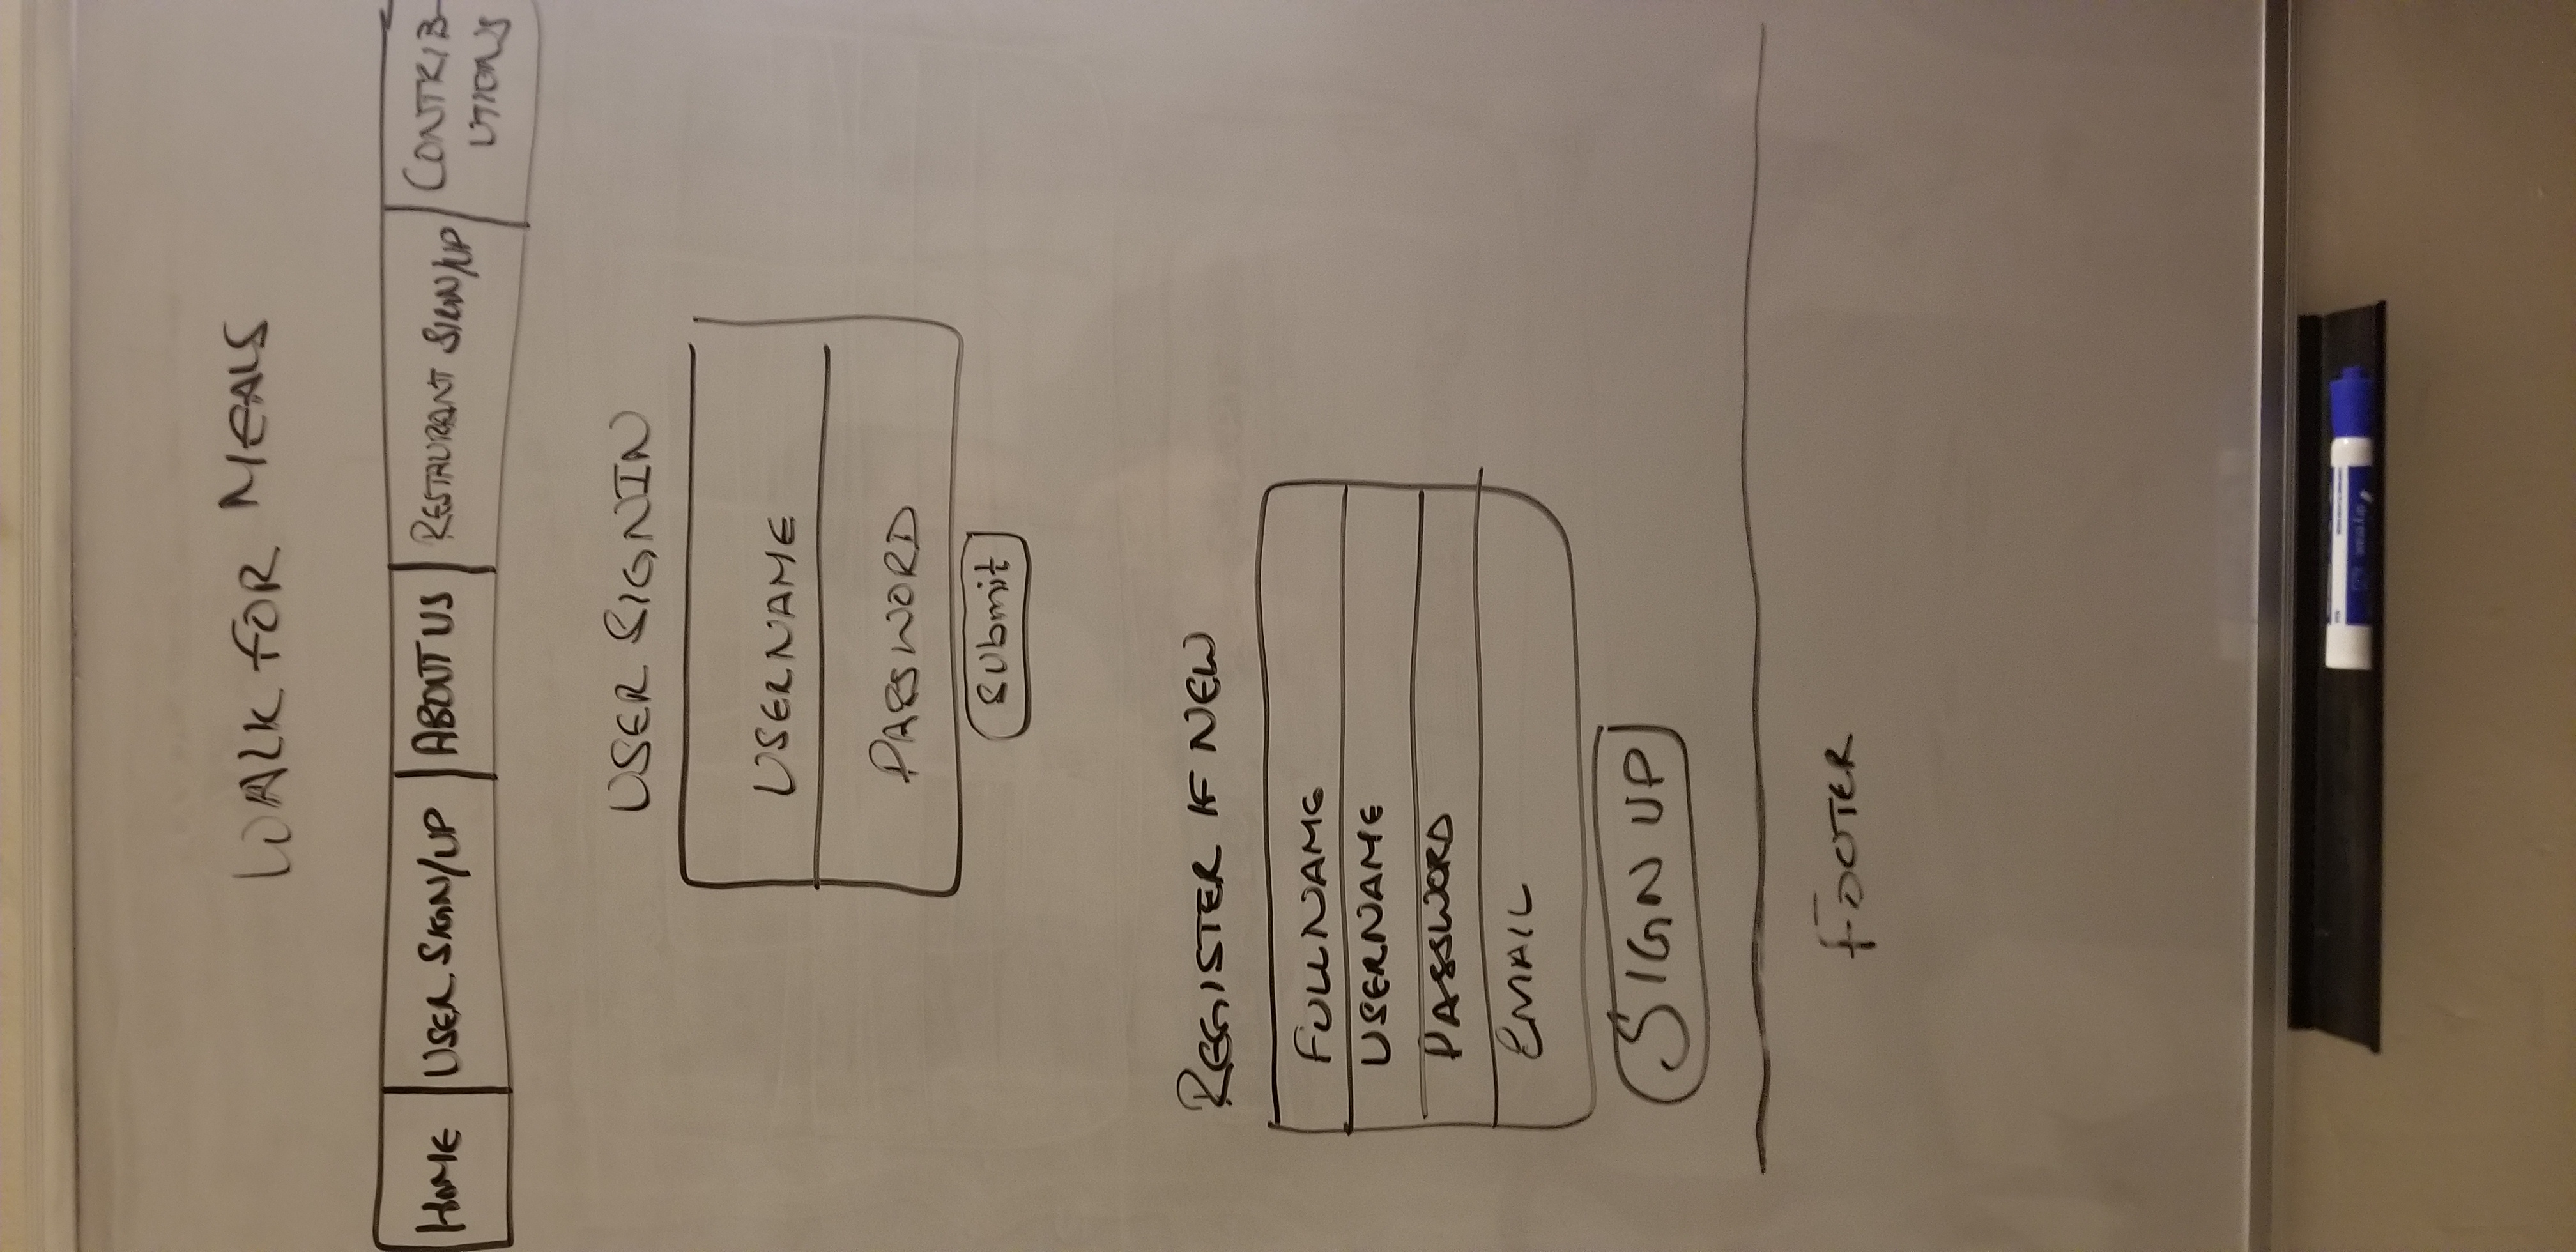 WALK FOR MEALS
HOME USER SIGN/UP ABOUT US RESTAURANT SIGN/UP CONTRIB-
UTIONS
USER SIGNIN
USERNAME
PASSWORD
submit
REGISTER IF NEW
FULLNAME
USERNAME
PASSWORD
EMAIL
SIGN UP
FOOTER